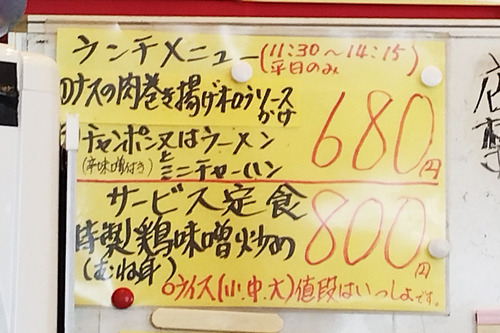 ランチメニュー(11:30～14:15)
平日のみ
ナスの肉巻き揚げ
ソース
かけ
チャンポン又はラーメン
(辛味噌付き) と ミニチャーハン
680円
サービス定食
特製鶏味噌炒め
(むね身)
800円
○ライス(小・中・大)値段はいっしょです。
店